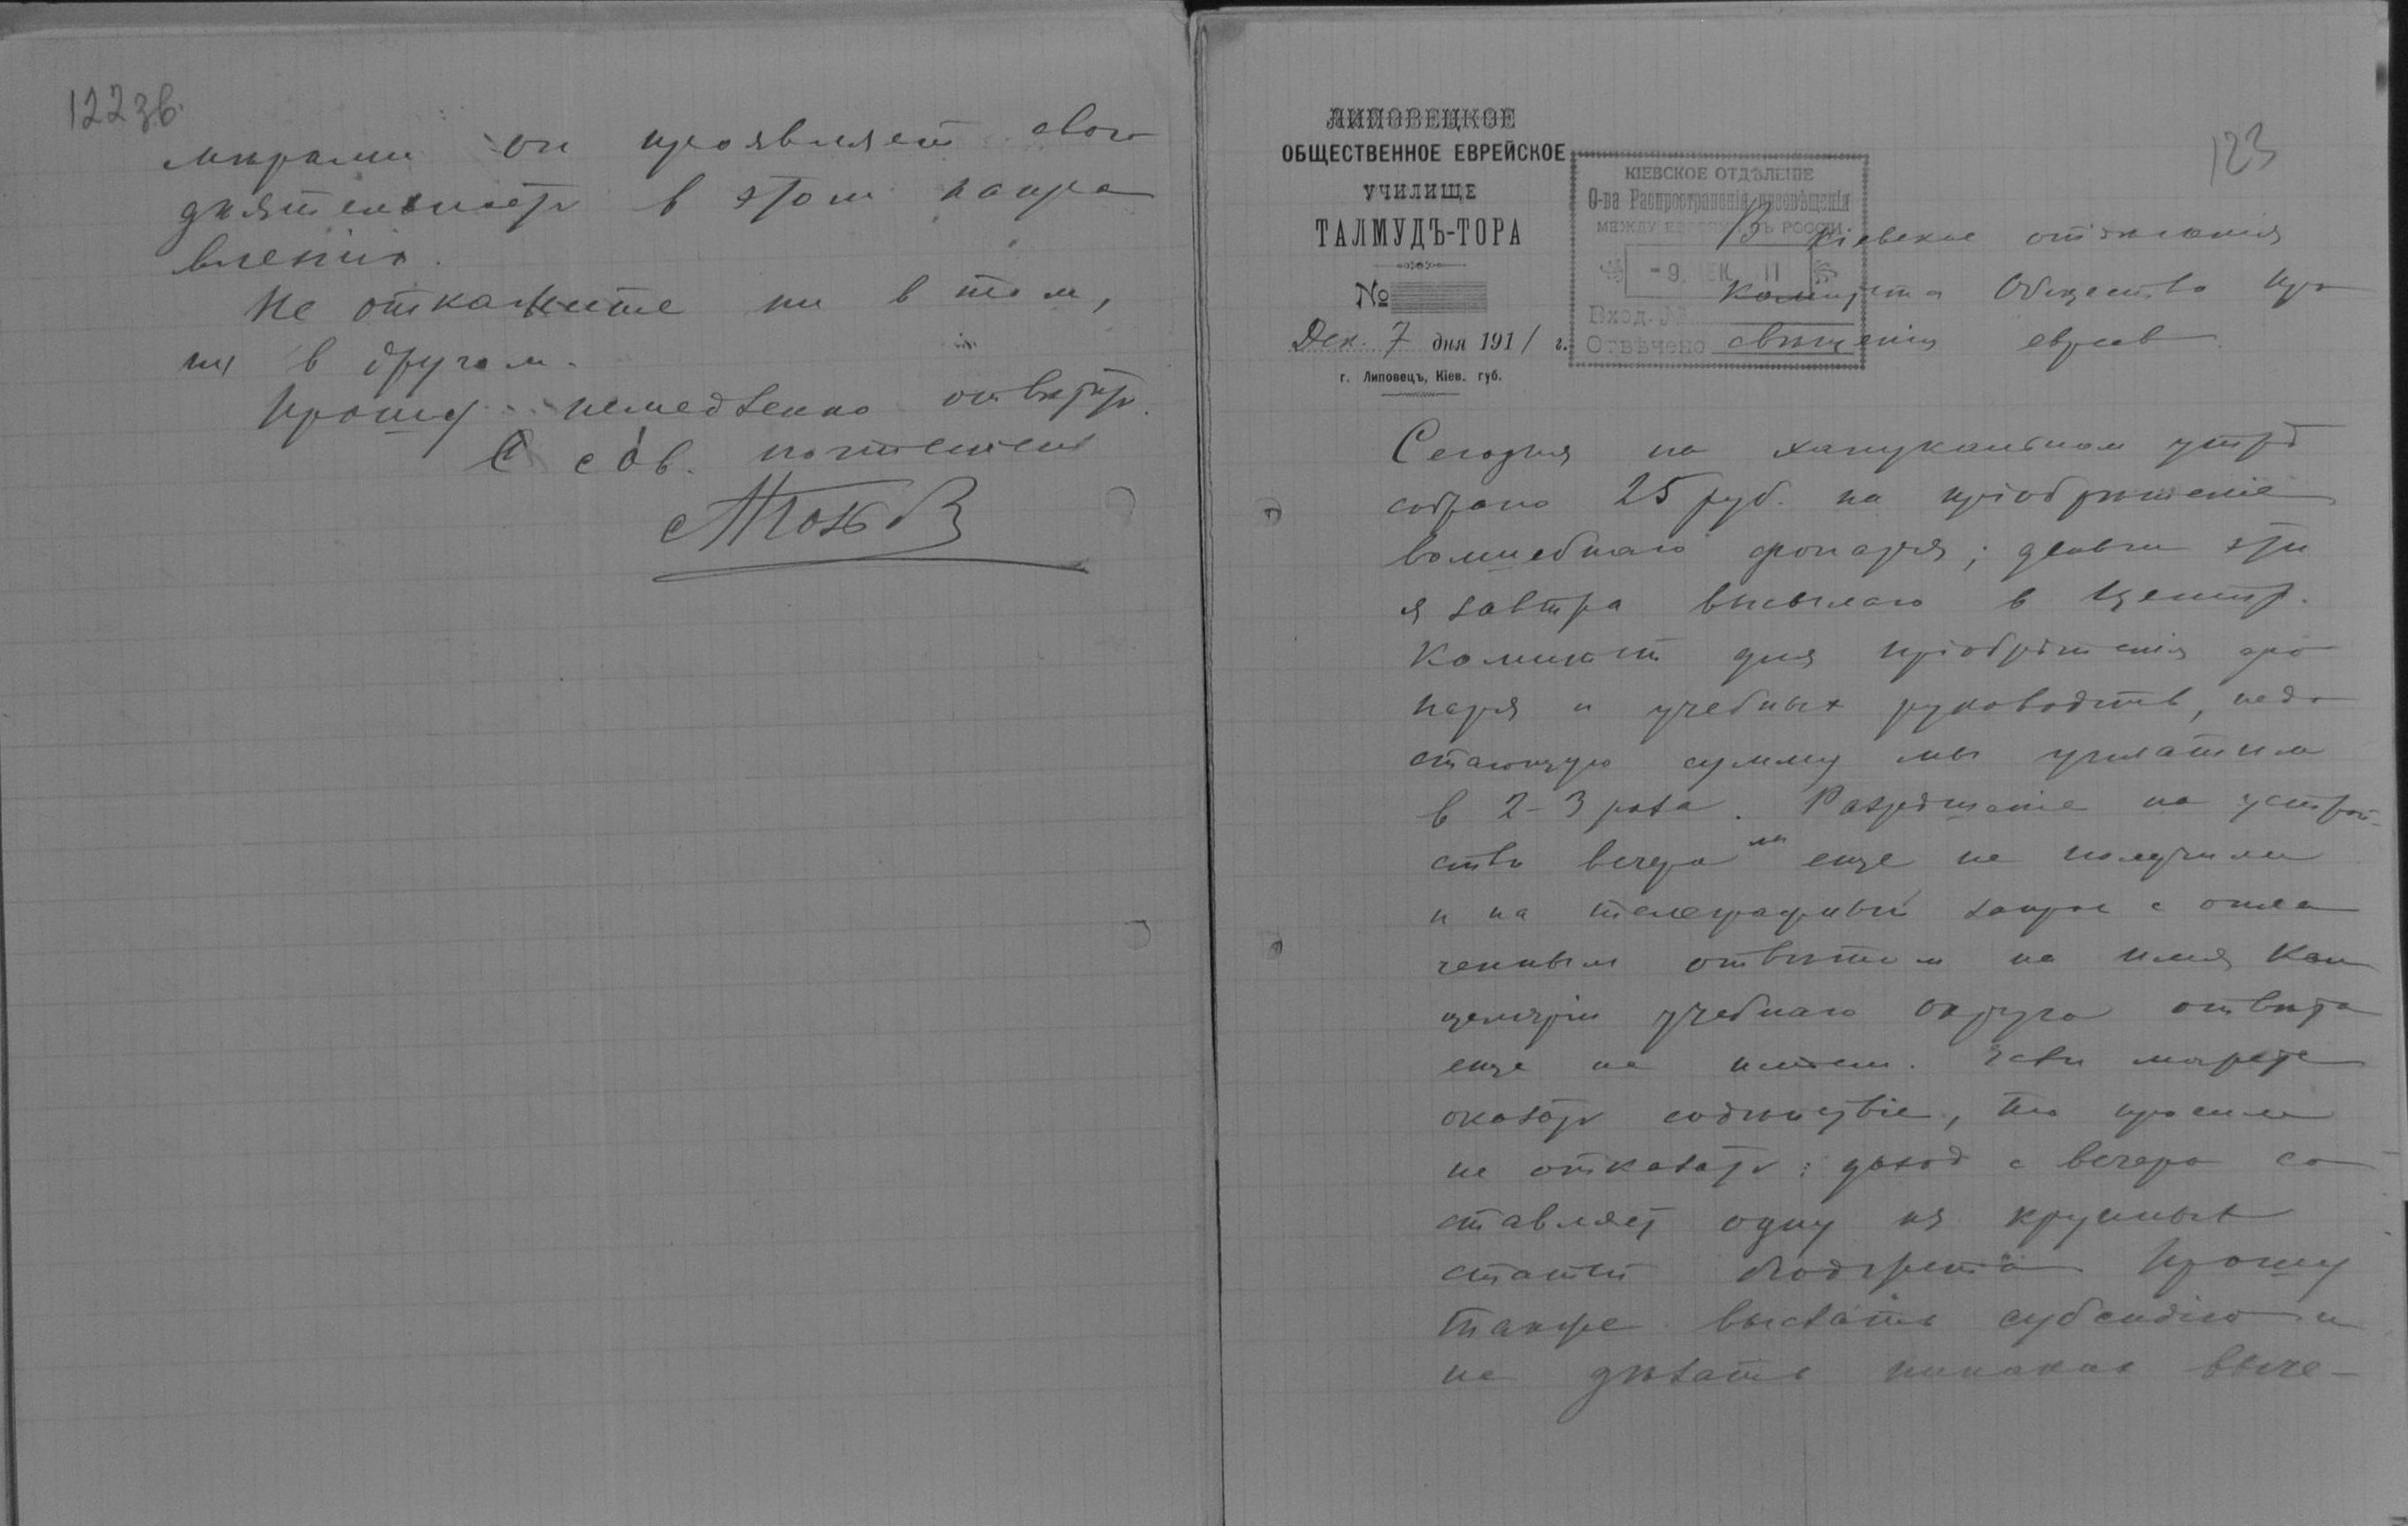 122 зв.
мѣрами он проявляет свою
дѣятельность в этом напра
вленіи.
Не откажите ни в том,
ни в другом.
Прошу немедленно отвѣтить.
С сов. почтеніем
123
ЛИПОВЕЦКОЕ
ОБЩЕСТВЕННОЕ ЕВРЕЙСКОЕ
УЧИЛИЩЕ
ТАЛМУДЪ-ТОРА
№
Дек. 7 дня 1911 г.
г. Липовецъ, Кіев. губ.
КІЕВСКОЕ ОТДѢЛЕНІЕ
О-ва Распространенія просвѣщенія
МЕЖДУ ЕВРЕЯМИ ВЪ РОССІИ
- 9. ДЕК. 11
Вход. №
Отвѣчено
В Кіевское отдѣленія
Комитета Общества про
свѣщенія евреев.
Сегодня на ханукальном утрѣ
собрано 25 руб. на пріобрѣтеніе
волшебнаго фонаря; деньги эти
я завтра высылаю в Центр.
Комитет для пріобрѣтенія фо
наря и учебных руководств, недо
стающую сумму мы уплатим
в 2-3 раза. Разрѣшеніе на устрой-
ство вечера мы еще не получили
и на телеграфный запрос с опла
ченным отвѣтом на имя Кан
целяріи учебнаго округа отвѣта
еще не имѣем. Если можете
оказать содѣйствіе, то просим
не отказать: доход с вечера со
ставляет одну из крупных
статей бюджета. Прошу
также выслать субсидію и
не дѣлать никаких выче-